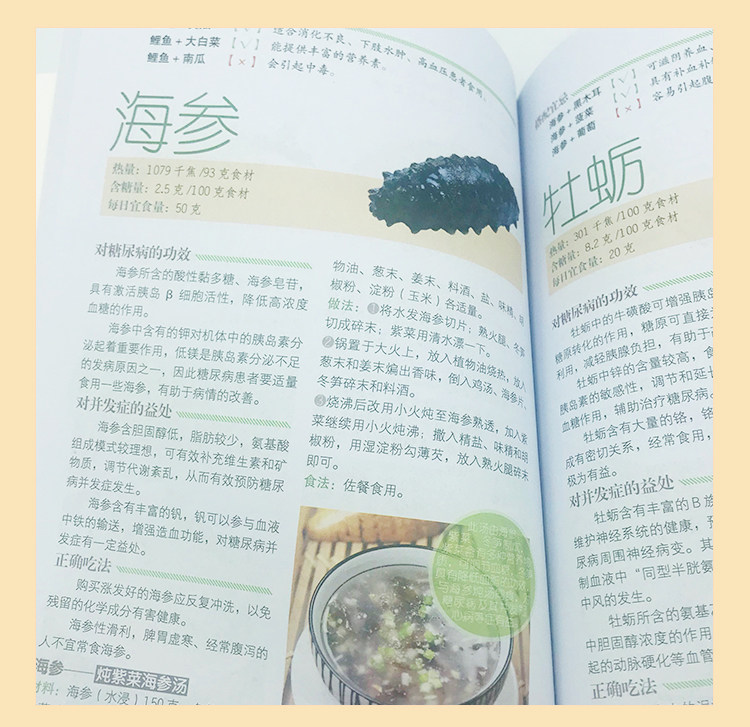 鲤鱼+大白菜 [√] 能提供丰富的营养素。
鲤鱼+南瓜 [×] 会引起中毒。
海参
热量：1079千焦/93克食材
含糖量：2.5克/100克食材
每日宜食量：50克
对糖尿病的功效
海参所含的酸性黏多糖、海参皂苷，
具有激活胰岛β细胞活性，降低高浓度
血糖的作用。
海参中含有的钾对机体中的胰岛素分
泌起着重要作用，低镁是胰岛素分泌不足
的发病原因之一，因此糖尿病患者要适量
食用一些海参，有助于病情的改善。
对并发症的益处
海参含胆固醇低，脂肪较少，氨基酸
组成模式较理想，可有效补充维生素和矿
物质，调节代谢紊乱，从而有效预防糖尿
病并发症发生。
海参含有丰富的钒，钒可以参与血液
中铁的输送，增强造血功能，对糖尿病并
发症有一定益处。
正确吃法
购买涨发好的海参应反复冲洗，以免
残留的化学成分有害健康。
海参性滑利，脾胃虚寒、经常腹泻的
人不宜常食海参。
海参——炖紫菜海参汤
材料：海参（水浸）150克
物油、葱末、姜末、料酒、盐、味精、胡
椒粉、淀粉（玉米）各适量。
做法：①将水发海参切片；熟火腿、冬笋
切成碎末；紫菜用清水漂一下。
②锅置于大火上，放入植物油烧热，放入
葱末和姜末煸出香味，倒入鸡汤、海参片、
冬笋碎末和料酒。
③烧沸后改用小火炖至海参熟透，加入紫
菜继续用小火炖沸；撒入精盐、味精和胡
椒粉，用湿淀粉勾薄芡，放入熟火腿碎末
即可。
食法：佐餐食用。
可滋阴养血、
海参+黑木耳 [√] 具有补血补
海参+菠菜 [√] 容易引起腹
海参+葡萄 [×]
牡蛎
热量：301千焦/100克食材
含糖量：8.2克/100克食材
每日宜食量：20克
对糖尿病的功效
牡蛎中的牛磺酸可增强胰岛
糖原转化的作用，糖原可直接
利用，减轻胰腺负担，有助于
牡蛎中锌的含量较高，食
胰岛素的敏感性，调节和延长
血糖作用，辅助治疗糖尿病。
牡蛎含有大量的铬，铬
成有密切关系，经常食用，
极为有益。
对并发症的益处
牡蛎含有丰富的B族
维护神经系统的健康，预
尿病周围神经病变。其
制血液中“同型半胱氨
中风的发生。
牡蛎所含的氨基
中胆固醇浓度的作用
起的动脉硬化等血管
正确吃法